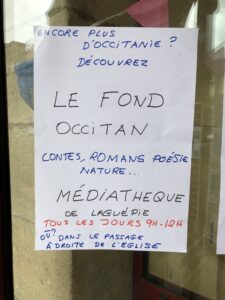 ENCORE PLUS
D'OCCITANIE ?
DÉCOUVREZ
LE FOND
OCCITAN
CONTES, ROMANS POÉSIE
NATURE...
MÉDIATHEQUE
DE LAGUÉPIE
TOUS LES JOURS 9H-12H
OÙ? DANS LE PASSAGE
À DROITE DE L'EGLISE